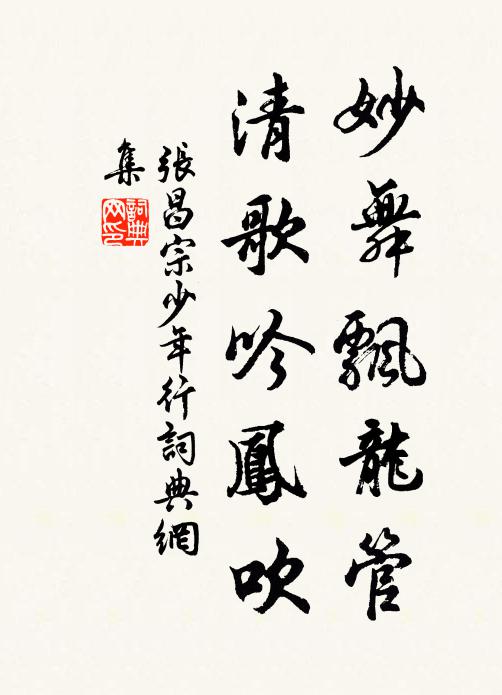 妙舞飄龍管
清歌吟鳳吹
張昌宗少年行詞典網
集
詞典
网印